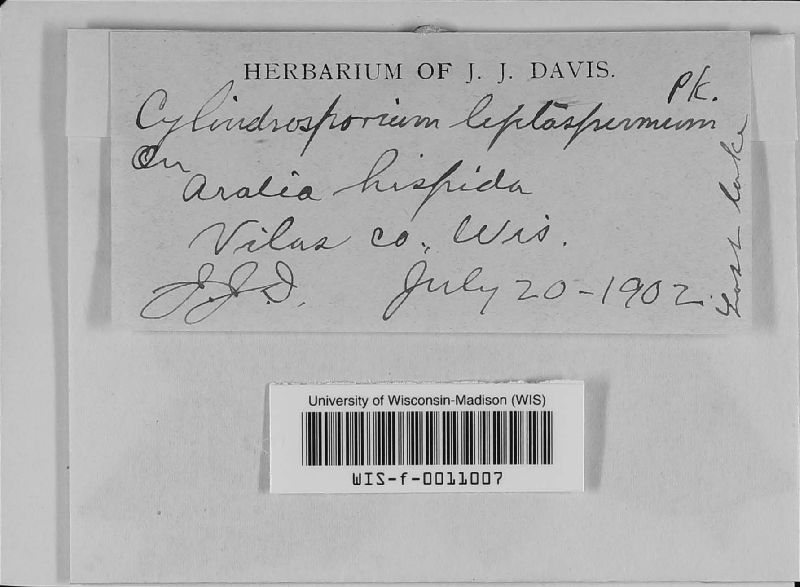 HERBARIUM OF J. J. DAVIS.
Cylindrosporium leptospermum Pk.
On
Aralia hispida
Vilas co., Wis.
J.J.D. July 20-1902.
Lost lake
University of Wisconsin-Madison (WIS)
WIS-f-0011007